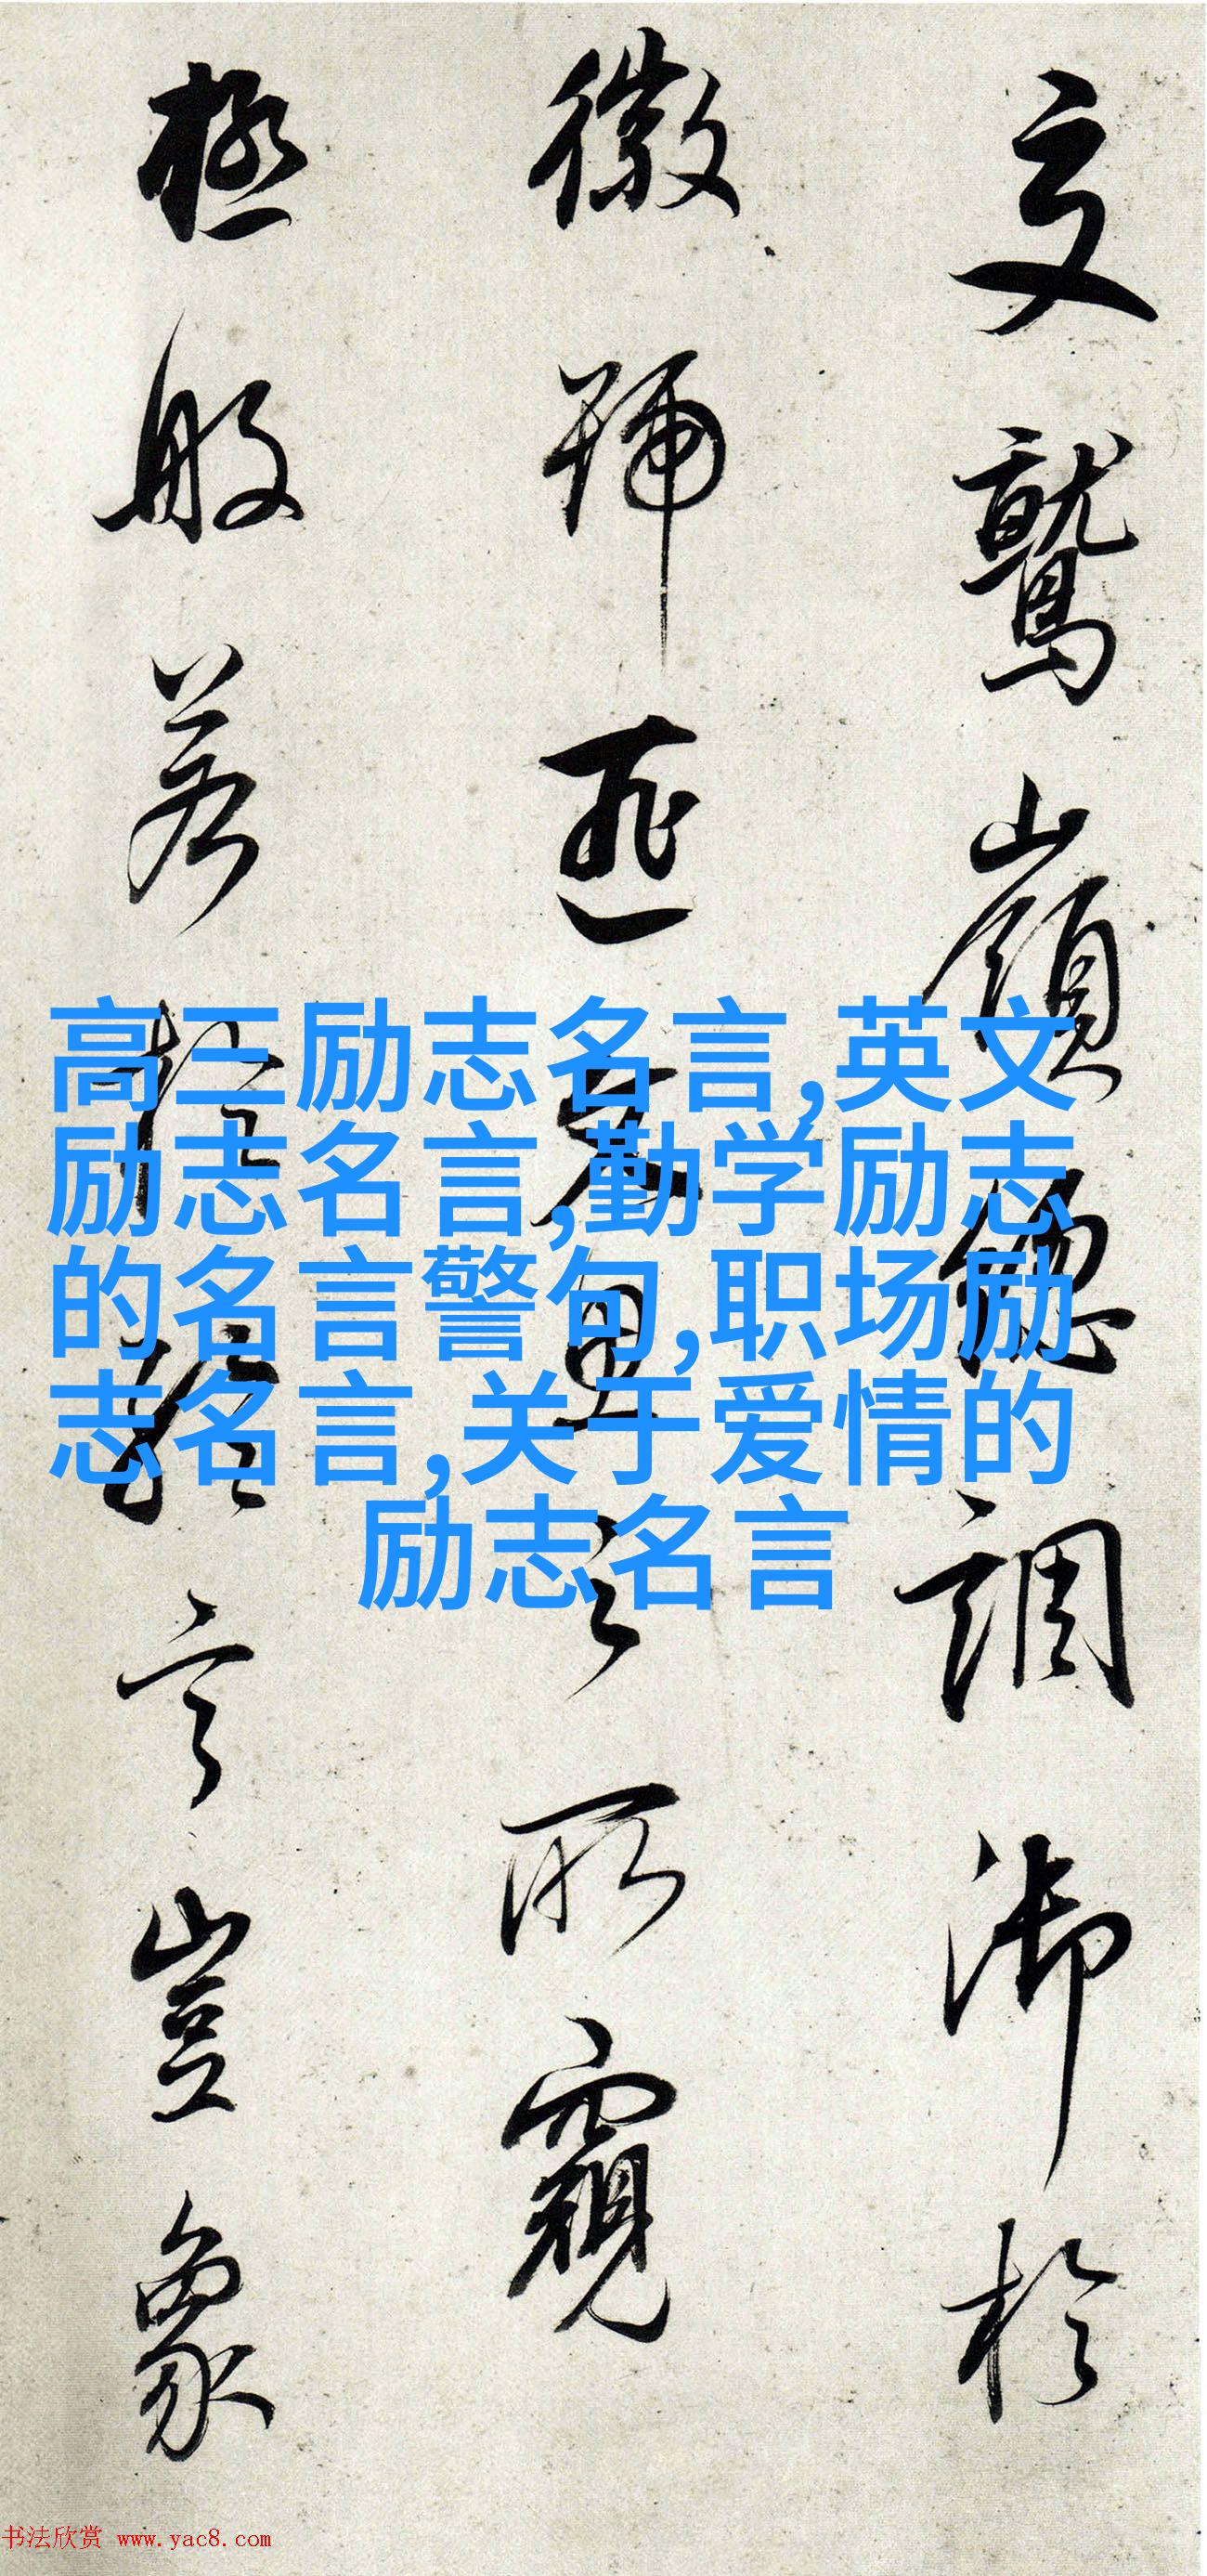 文鷲嶺德調御於
徽號匪見之所窺
極般若於輕言豈象
高三励志名言,英文
励志名言,勤学励志
的名言警句,职场励
志名言,关于爱情的
励志名言
书法欣赏 www.yac8.com